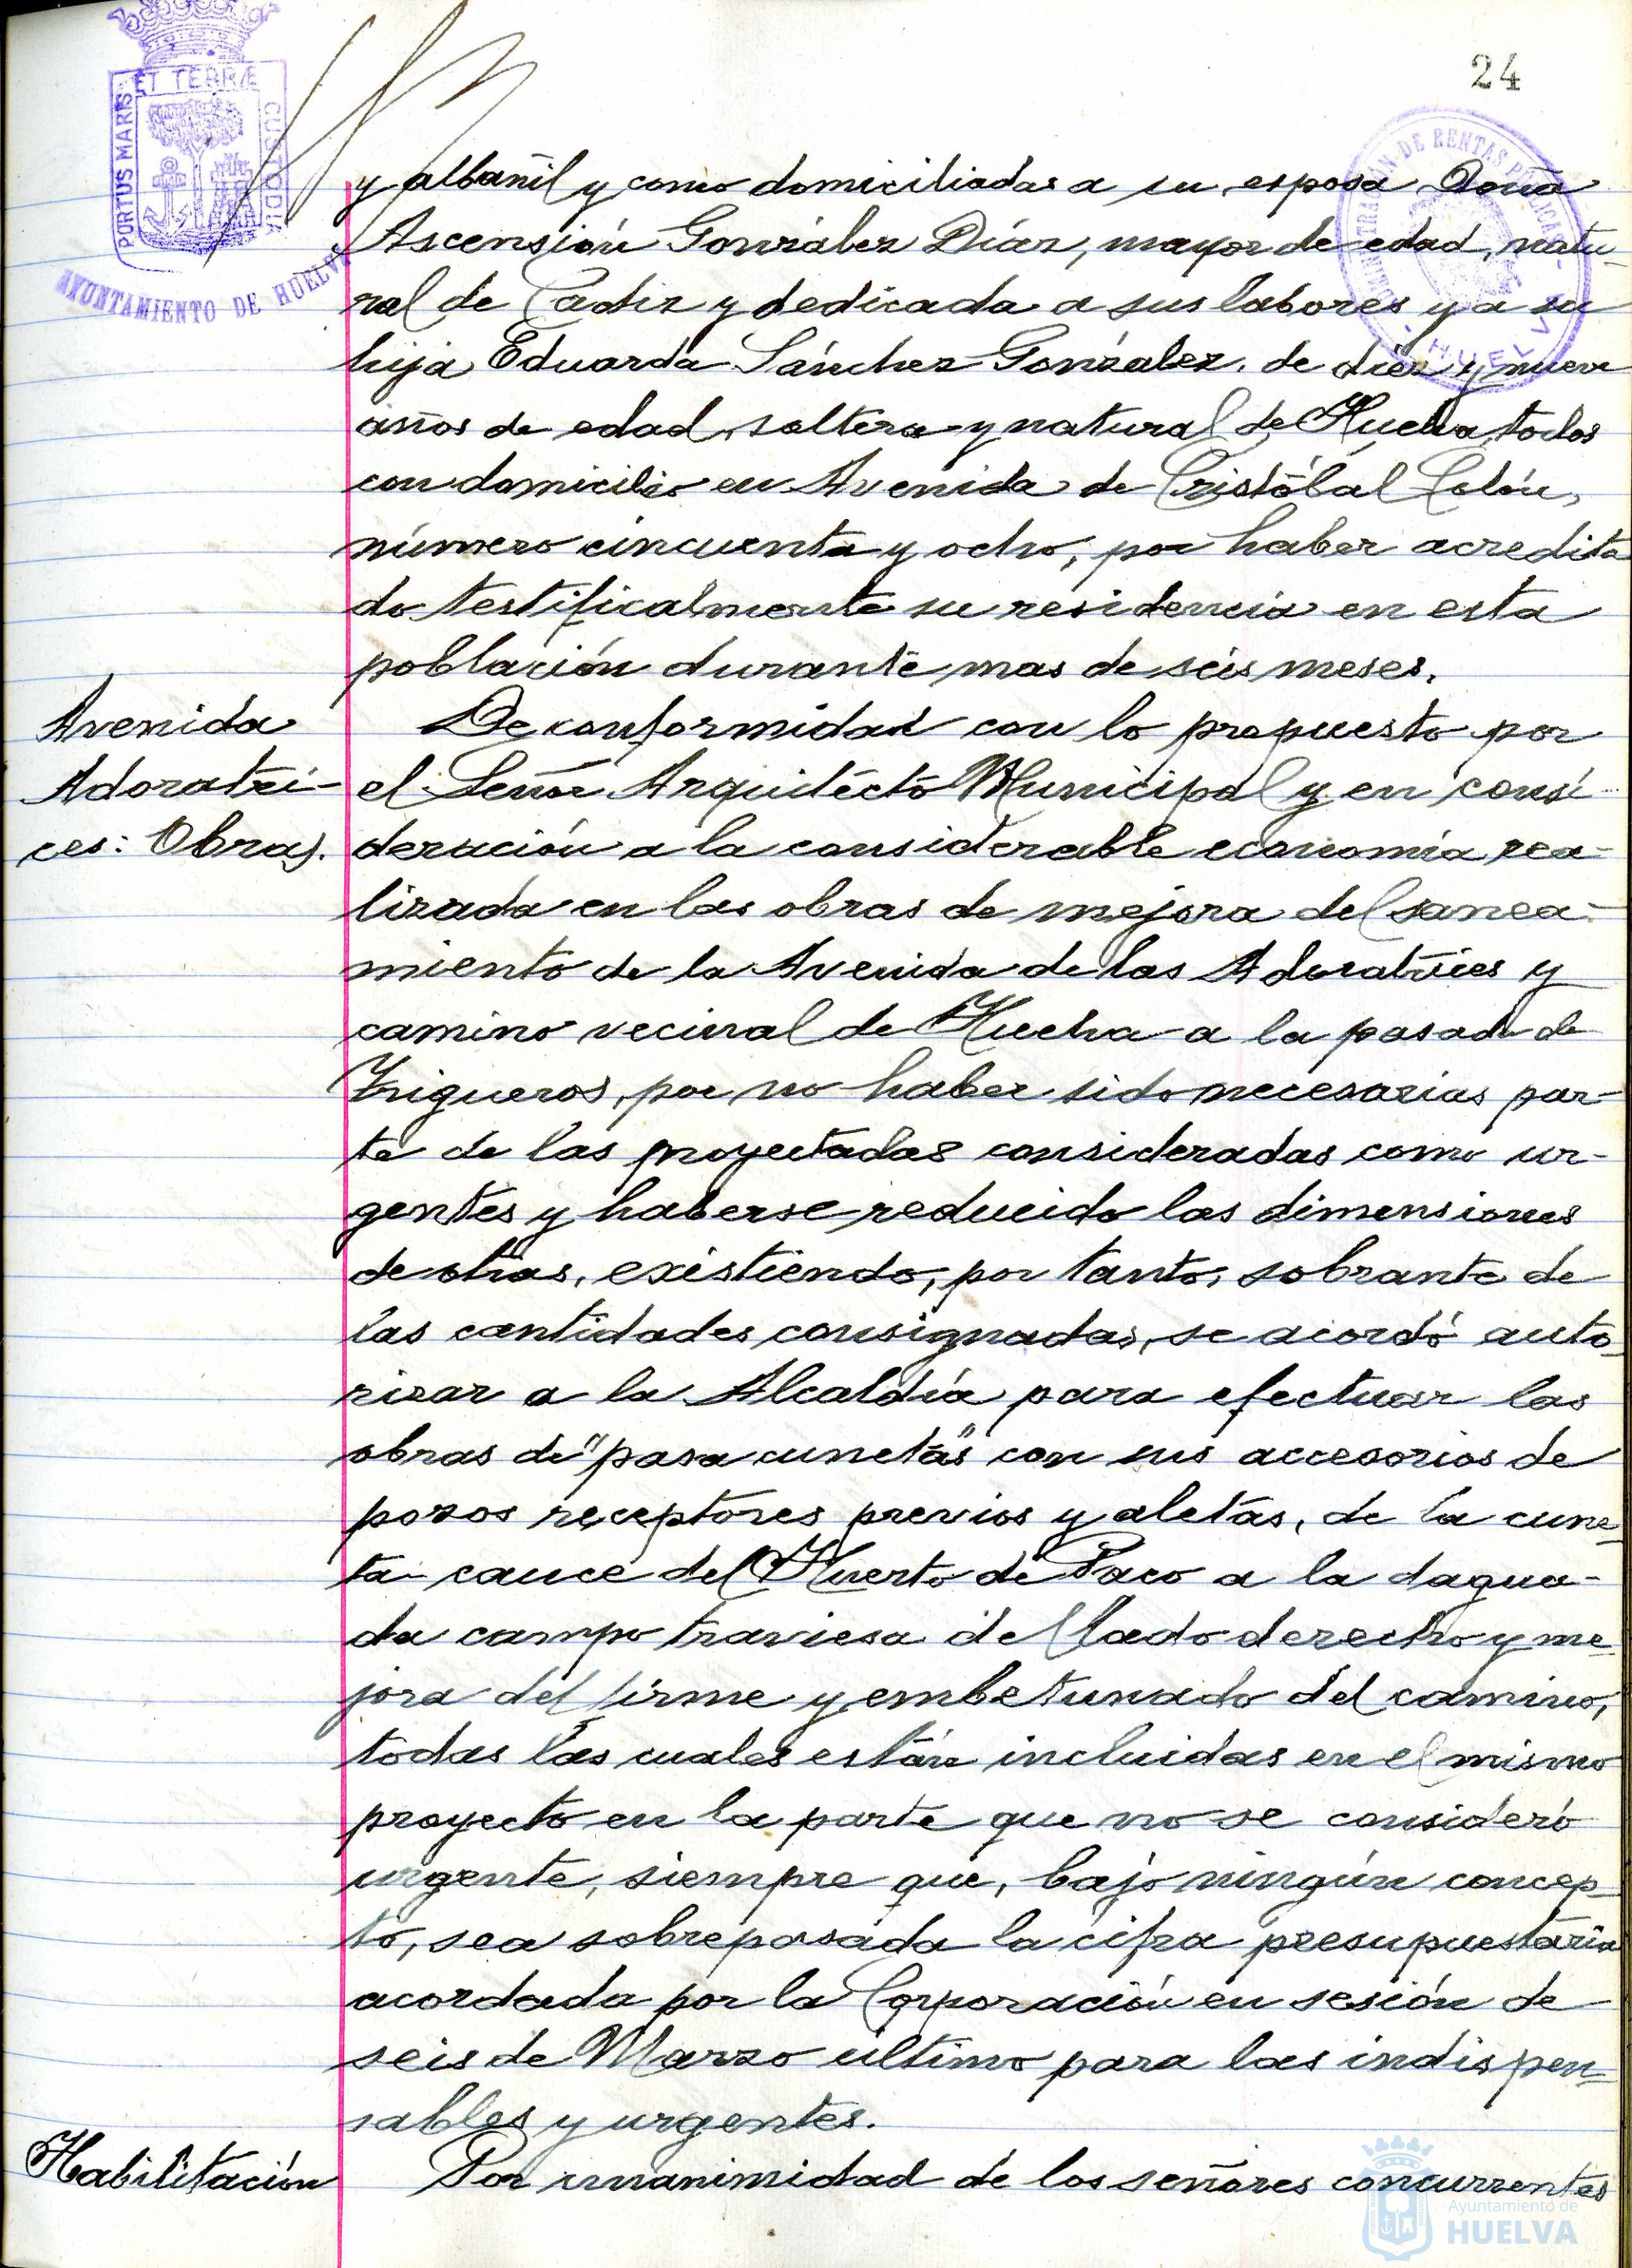 24
PORTUS MARIS ET TERRÆ CUSTODIA
AYUNTAMIENTO DE HUELVA
ADMINISTRACIÓN DE RENTAS PÚBLICAS
HUELVA
y albañil y como domiciliadas a su esposa Doña
Ascensión González Díaz, mayor de edad, natu-
ral de Cádiz y dedicada a sus labores y a su
hija Eduarda Sánchez González, de diez y nueve
años de edad, soltera y natural de Huelva, todos
con domicilio en Avenida de Cristóbal Colón,
número cincuenta y ocho, por haber acredita
do testificalmente su residencia en esta
población durante mas de seis meses.
Avenida
Adoratri-
ces: Obras.
De conformidad con lo propuesto por
el Señor Arquitecto Municipal y en consi-
deración a la considerable economía rea-
lizada en las obras de mejora del sanea-
miento de la Avenida de las Adoratrices y
camino vecinal de Huelva a la pasada de
Trigueros, por no haber sido necesarias par-
te de las proyectadas consideradas como ur-
gentes y haberse reducido las dimensiones
de otras, existiendo, por tanto, sobrante de
las cantidades consignadas, se acordó auto-
rizar a la Alcaldía para efectuar las
obras de "pasa cunetas" con sus accesorios de
pozos receptores previos y aletas, de la cune-
ta cauce del Huerto de Paco a la dagua-
da campo traviesa del lado derecho y me-
jora del firme y embetunado del camino,
todas las cuales están incluidas en el mismo
proyecto en la parte que no se consideró
urgente, siempre que, bajo ningún concep-
to, sea sobrepasada la cifra presupuestaria
acordada por la Corporación en sesión de
seis de Marzo último para las indispen-
sables y urgentes.
Habilitación
Por unanimidad de los señores concurrentes
Ayuntamiento de
HUELVA